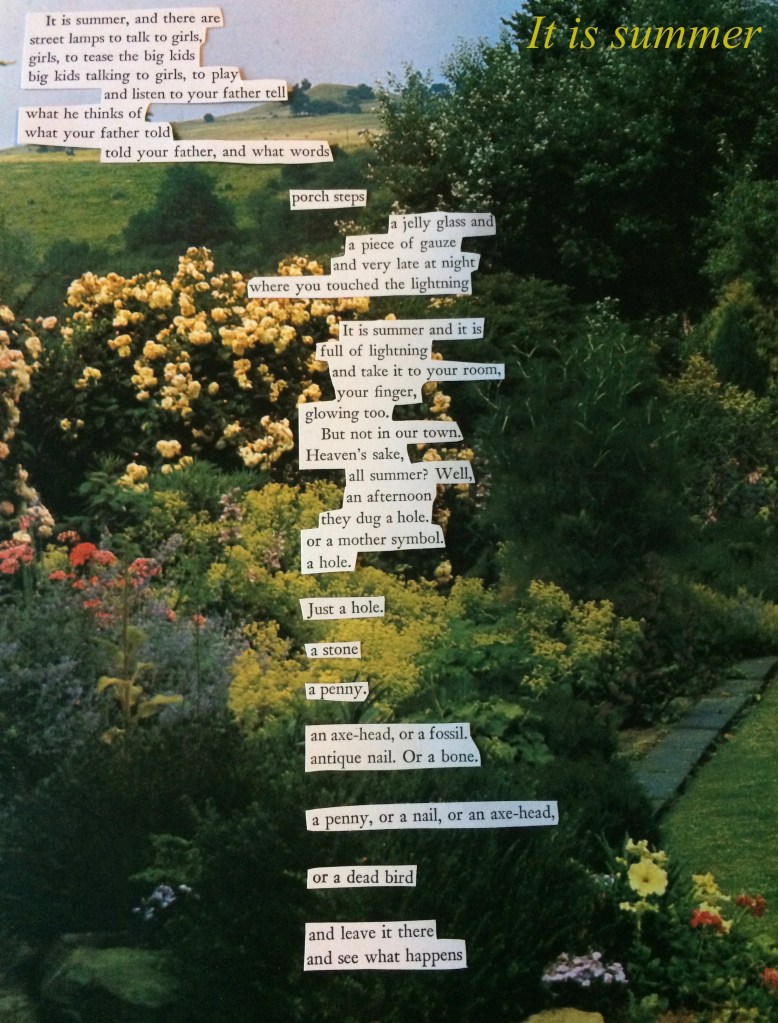 It is summer
It is summer, and there are
street lamps to talk to girls,
girls, to tease the big kids
big kids talking to girls, to play
and listen to your father tell
what he thinks of
what your father told
told your father, and what words
porch steps
a jelly glass and
a piece of gauze
and very late at night
where you touched the lightning
It is summer and it is
full of lightning
and take it to your room,
your finger,
glowing too.
But not in our town.
Heaven's sake,
all summer? Well,
an afternoon
they dug a hole.
or a mother symbol.
a hole.
Just a hole.
a stone
a penny.
an axe-head, or a fossil.
antique nail. Or a bone.
a penny, or a nail, or an axe-head,
or a dead bird
and leave it there
and see what happens